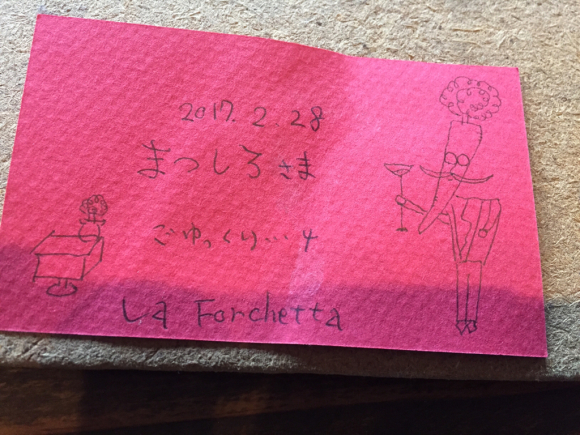 2017.2.28
まつしろさま
ごゆっくり…
La Forchetta